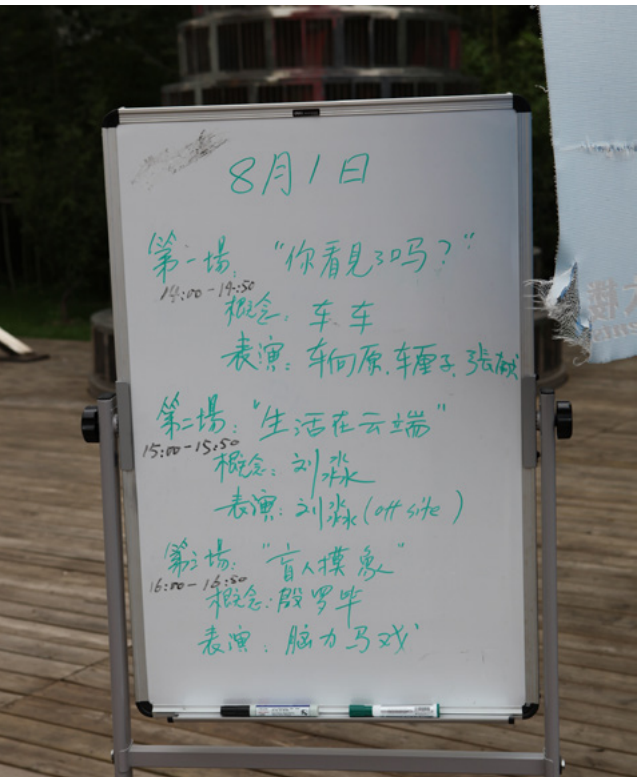 8月1日
第一場："你看見了吗？"
14:00-14:50
概念：车车
表演：车向原、车厘子、張献
第二場："生活在云端"
15:00-15:50
概念：刘淼
表演：刘淼(off site)
第三場："盲人摸象"
16:00-16:50
概念：殷罗毕
表演：脑力马戏
楼